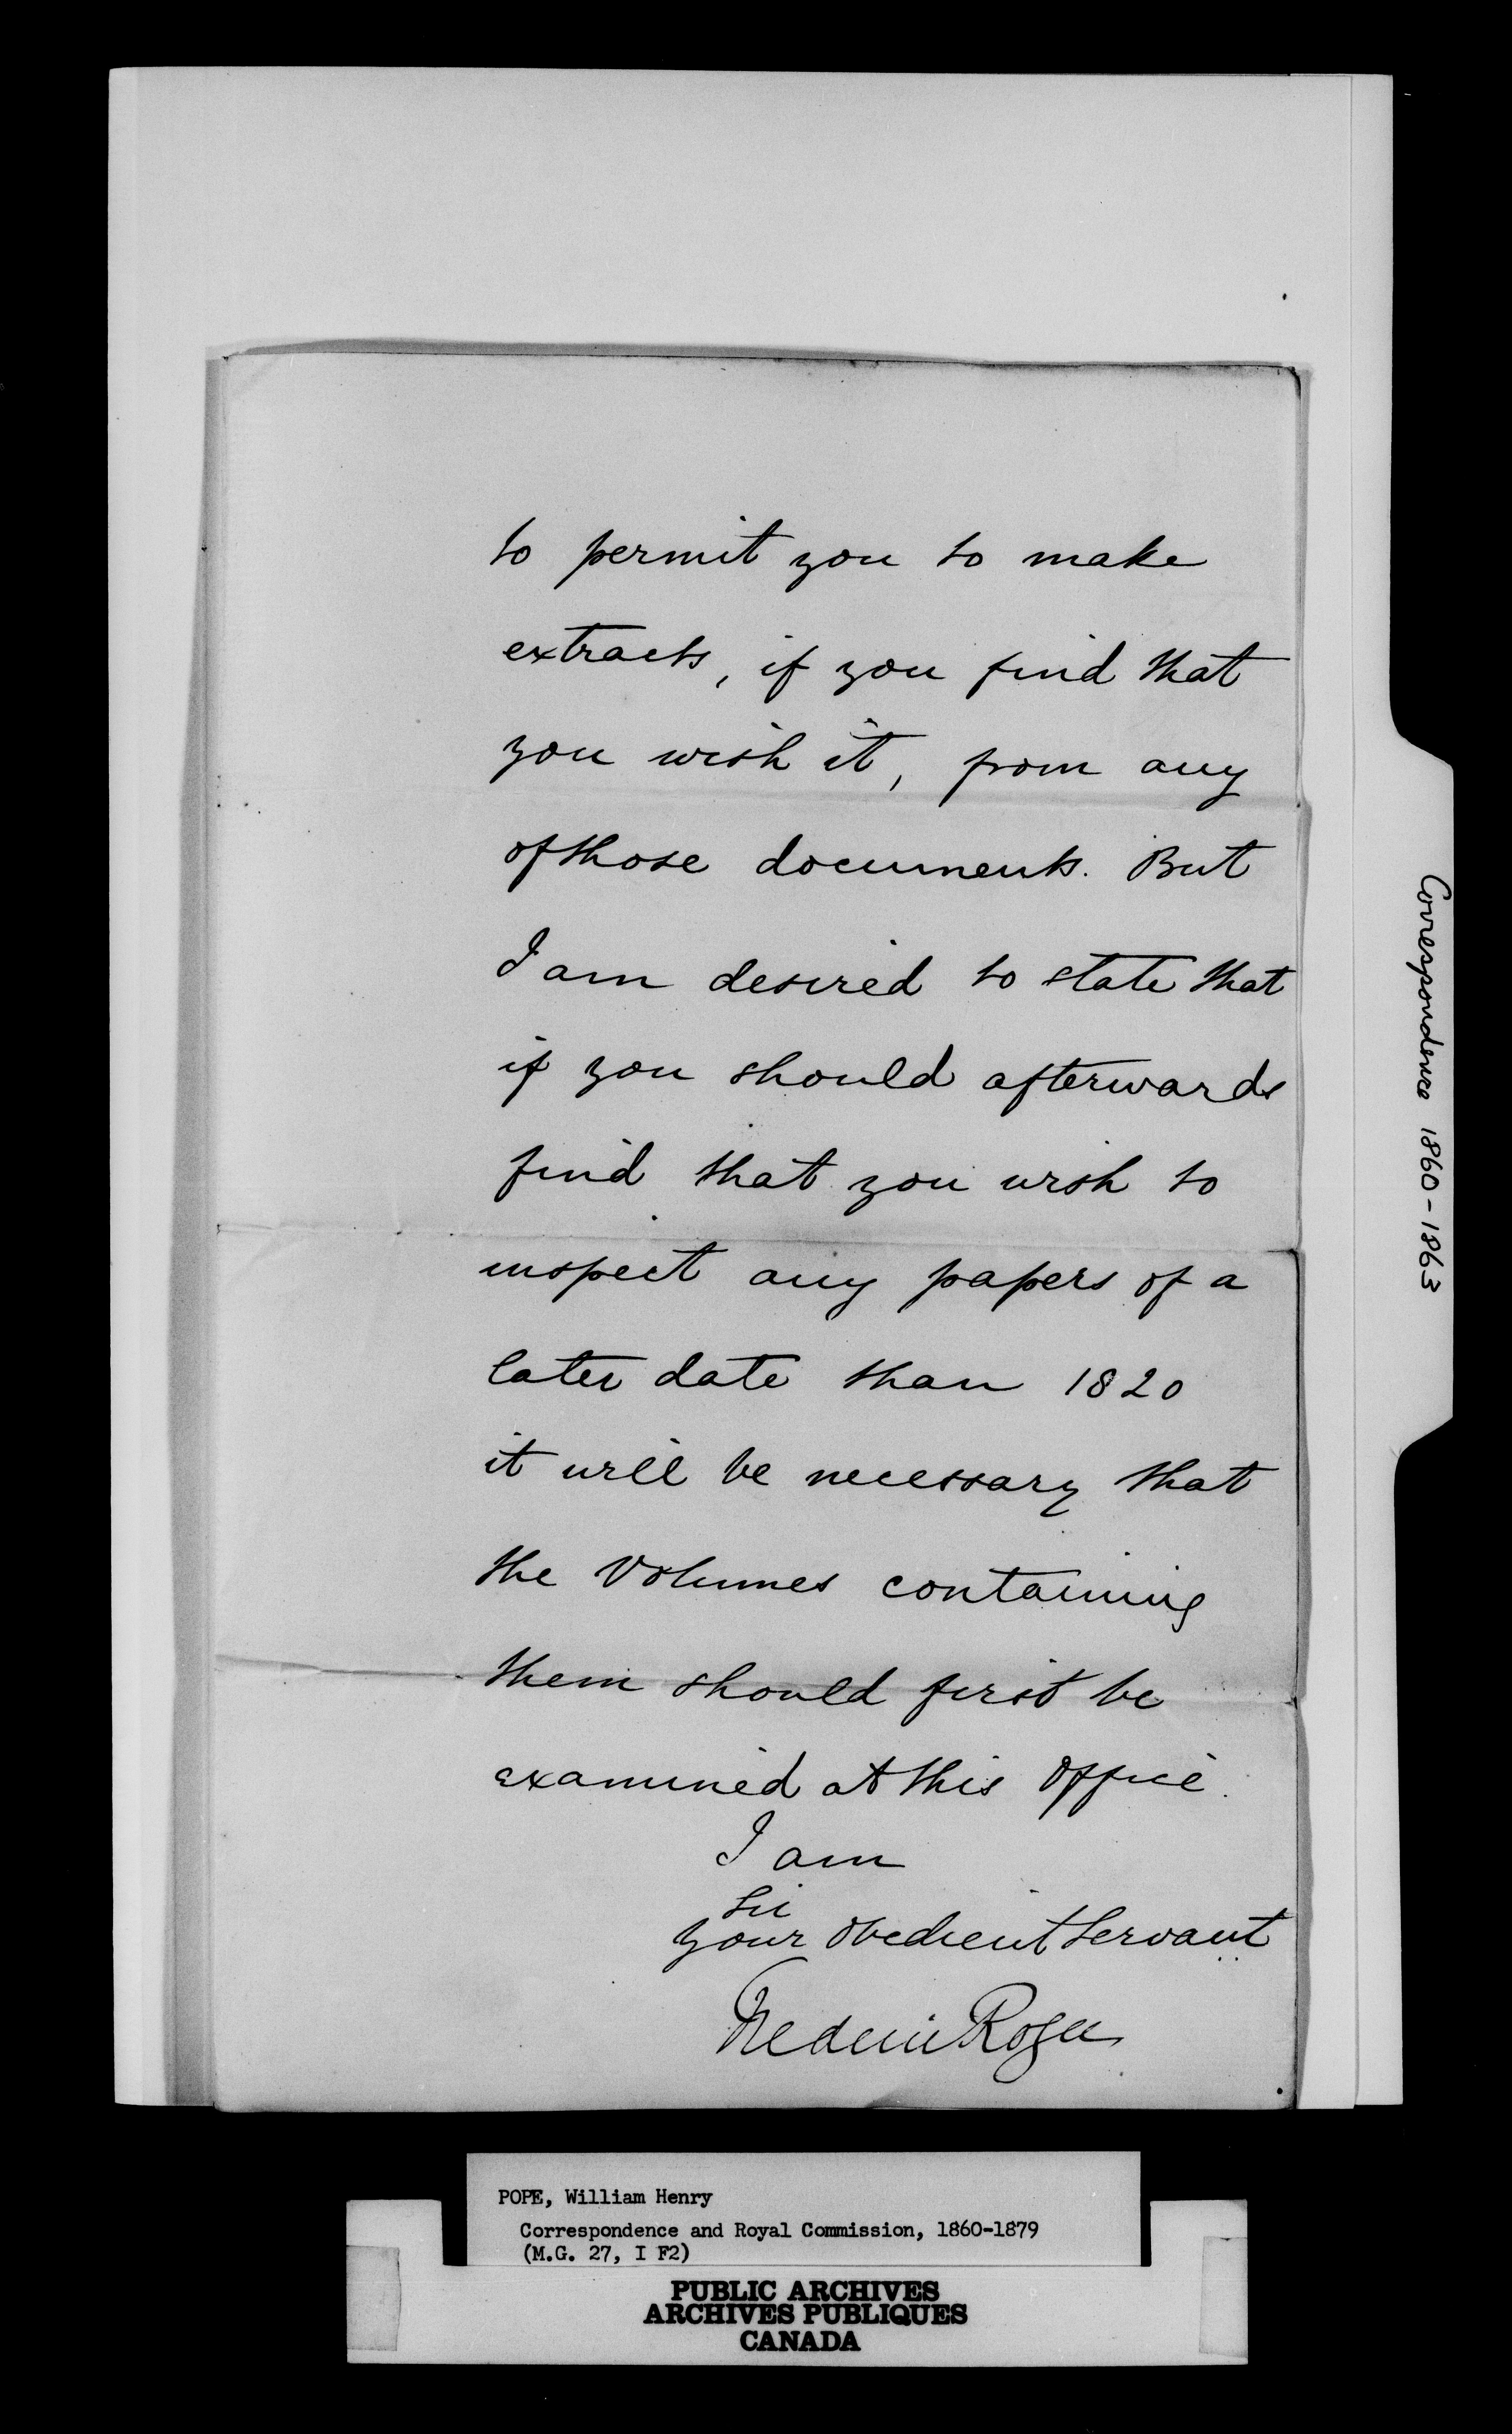 to permit you to make
extracts, if you find that
you wish it, from any
of those documents. But
I am desired to state that
if you should afterwards
find that you wish to
inspect any papers of a
later date than 1820
it will be necessary that
the Volumes containing
them should first be
examined at this Office.
I am
Sir
Your Obedient Servant
Frederic Rogers
Correspondence 1860-1863
POPE, William Henry
Correspondence and Royal Commission, 1860-1879
(M.G. 27, I F2)
PUBLIC ARCHIVES
ARCHIVES PUBLIQUES
CANADA